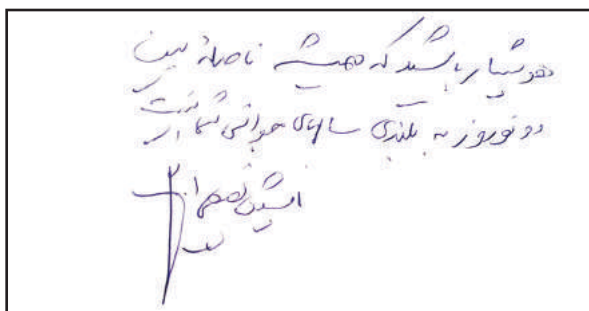 هوشیار باشید که همیشه فاصلهٔ بین
دو نوروز به بلندی سالهای جوانی شما نیست
افشین